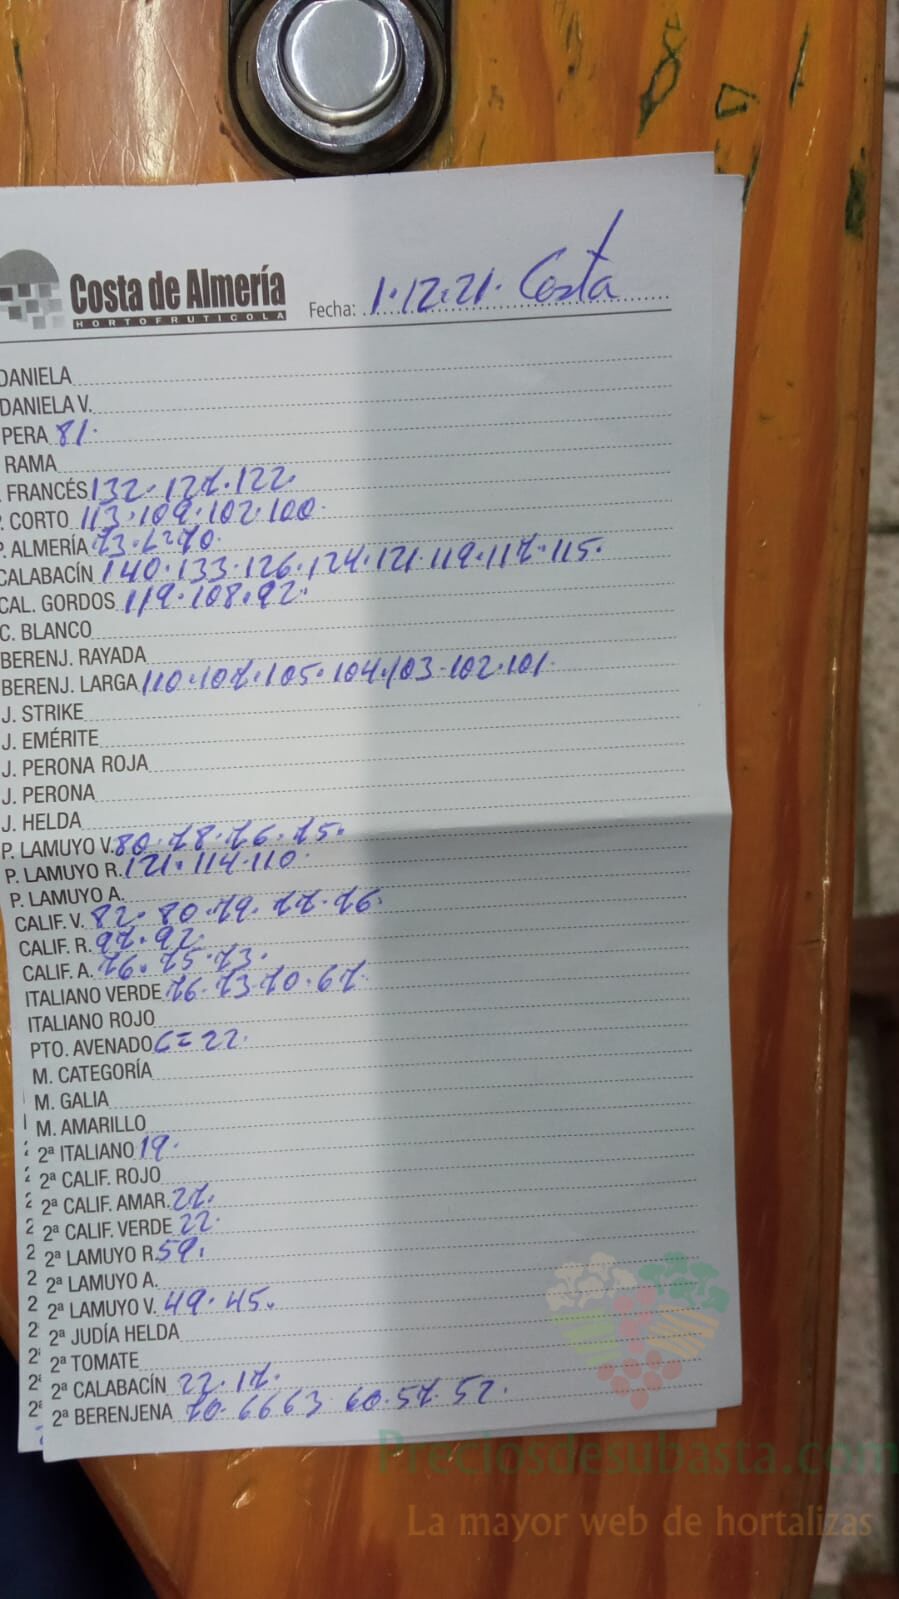 Costa de Almería
HORTOFRUTICOLA
Fecha: 1.12.21. Costa
DANIELA
DANIELA V.
PERA 81.
RAMA
FRANCÉS 132.127.122.
P. CORTO 113.109.102.100.
P. ALMERÍA 73. 70.
CALABACÍN 140.133.126.124.121.119.117.115.
CAL. GORDOS 119.108.92.
C. BLANCO
BERENJ. RAYADA
BERENJ. LARGA 110.107.105.104.103.102.101.
J. STRIKE
J. EMÉRITE
J. PERONA ROJA
J. PERONA
J. HELDA
P. LAMUYO V. 80.78.76.75.
P. LAMUYO R. 121.114.110.
P. LAMUYO A.
CALIF. V. 82.80.79.77.76.
CALIF. R. 97.92.
CALIF. A. 76.75.73.
ITALIANO VERDE 76.73.70.67.
ITALIANO ROJO
PTO. AVENADO C=22.
M. CATEGORÍA
M. GALIA
M. AMARILLO
2ª ITALIANO 19.
2ª CALIF. ROJO
2ª CALIF. AMAR. 27.
2ª CALIF. VERDE 22.
2ª LAMUYO R. 59.
2ª LAMUYO A.
2ª LAMUYO V. 49.45.
2ª JUDÍA HELDA
2ª TOMATE
2ª CALABACÍN 22.17.
2ª BERENJENA 70.66 63 60.57.52.
Preciosdesubasta.com
La mayor web de hortalizas